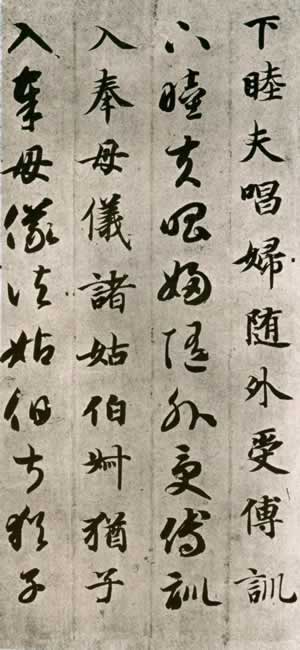 下睦夫唱婦随外受傅訓
下睦夫唱婦随外受傅訓
入奉母儀諸姑伯卅猶子
入奉母儀諸姑伯叔猶子